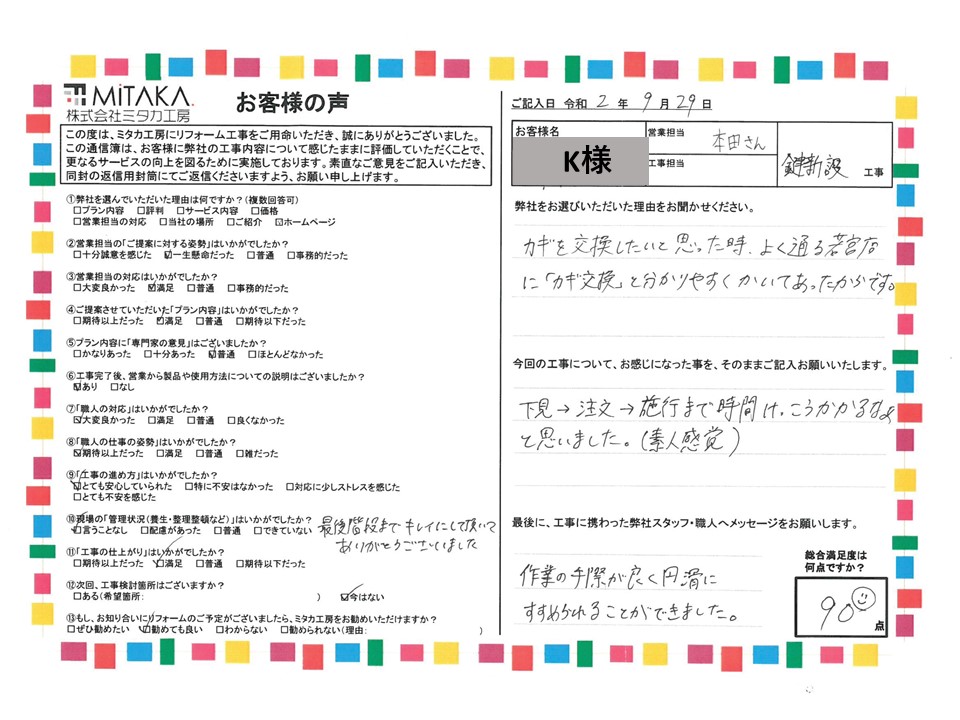 MiTAKA.
株式会社ミタカ工房
お客様の声
この度は、ミタカ工房にリフォーム工事をご用命いただき、誠にありがとうございました。
この通信簿は、お客様に弊社の工事内容について感じたままに評価していただくことで、
更なるサービスの向上を図るために実施しております。素直なご意見をご記入いただき、
同封の返信用封筒にてご返信くださいますよう、お願い申し上げます。
①弊社を選んでいただいた理由は何ですか？(複数回答可)
□プラン内容 □評判 □サービス内容 □価格
□営業担当の対応 □当社の場所 □ご紹介 ☑ホームページ
②営業担当の「ご提案に対する姿勢」はいかがでしたか？
□十分誠意を感じた ☑一生懸命だった □普通 □事務的だった
③営業担当の対応はいかがでしたか？
□大変良かった ☑満足 □普通 □事務的だった
④ご提案させていただいた「プラン内容」はいかがでしたか？
□期待以上だった ☑満足 □普通 □期待以下だった
⑤プラン内容に「専門家の意見」はございましたか？
□かなりあった □十分あった ☑普通 □ほとんどなかった
⑥工事完了後、営業から製品や使用方法についての説明はございましたか？
☑あり □なし
⑦「職人の対応」はいかがでしたか？
☑大変良かった □満足 □普通 □良くなかった
⑧「職人の仕事の姿勢」はいかがでしたか？
☑期待以上だった □満足 □普通 □雑だった
⑨「工事の進め方」はいかがでしたか？
☑とても安心していられた □特に不安はなかった □対応に少しストレスを感じた
□とても不安を感じた
⑩現場の「管理状況(養生・整理整頓など)」はいかがでしたか？
☑言うことなし □配慮があった □普通 □できていない
最後階段までキレイにして頂いて
ありがとうございました
⑪「工事の仕上がり」はいかがでしたか？
□期待以上だった ☑満足 □普通 □期待以下だった
⑫次回、工事検討箇所はございますか？
□ある(希望箇所: ) ☑今はない
⑬もし、お知り合いにリフォームのご予定がございましたら、ミタカ工房をお勧めいただけますか？
□ぜひ勧めたい ☑勧めても良い □わからない □勧められない(理由: )
ご記入日 令和 2 年 9 月 29 日
お客様名
K様
営業担当
本田さん
工事担当
鍵新設 工事
弊社をお選びいただいた理由をお聞かせください。
カギを交換したいと思った時、よく通る若宮店
に「カギ交換」と分かりやすくかいてあったからです。
今回の工事について、お感じになった事を、そのままご記入お願いいたします。
下見→注文→施行まで時間けっこうかかるなぁ
と思いました。(素人感覚)
最後に、工事に携わった弊社スタッフ・職人へメッセージをお願いします。
作業の手際が良く円滑に
すすめられることができました。
総合満足度は
何点ですか？
90 点